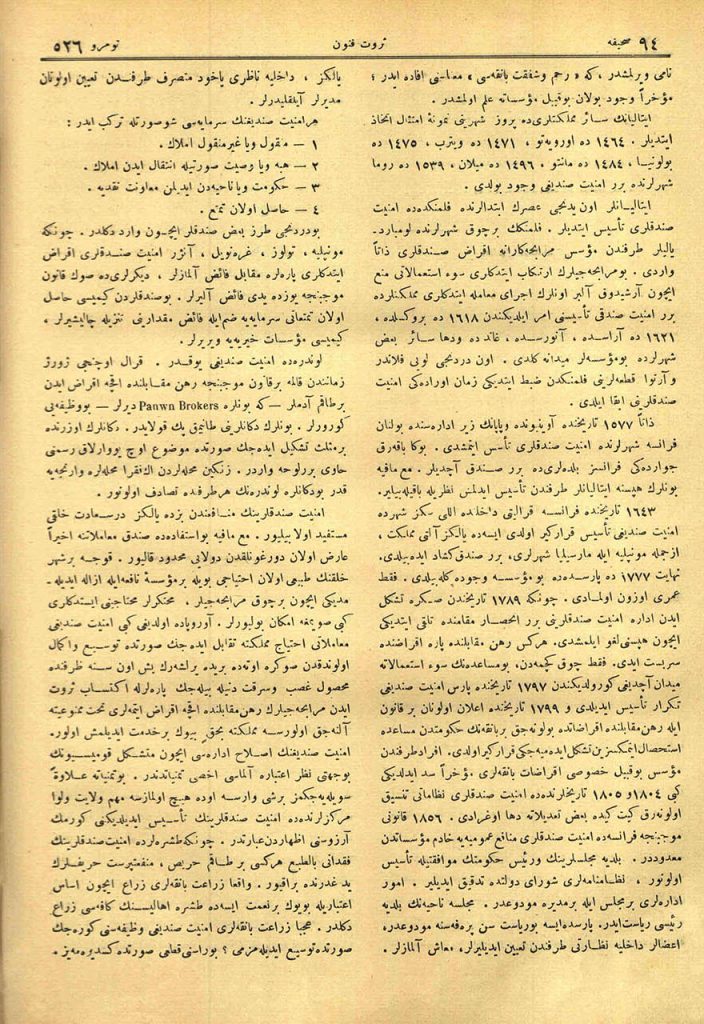 ٩٤ صحیفه
ثروت فنون
نومرو ٥٢٦
نامی ویرلمشدر ، که « رحم وشفقت بانقه‌سی » معناسنی افاده ایدر ؛
مؤخراً وجود بولان بوقبیل مؤسساته علم اولمشدر .
ایتالیانك سائر مملكتلری‌ده پروز شهرینی نمونهٔ امتثال اتخاذ
ایتدیلر . ١٤٦٤ ده اورویه‌تو ، ١٤٧١ ده ویترب ، ١٤٧٥ ده
بولونیا ، ١٤٨٤ ده مانتو ، ١٤٩٦ ده میلان ، ١٥٣٩ ده روما
شهرلرنده برر امنیت صندیغی وجود بولدی .
ایتالیانلر اون یدنجی عصرك ابتدالرنده فلمنكده‌ده امنیت
صندقلری تأسیس ایتدیلر . فلمنكك برچوق شهرلرنده لومبارد-
یالیلر طرفندن مؤسس مرابحه‌كارانه اقراض صندقلری ذاتاً
واردی . بومرابحه‌جیلرك ارتكاب ایتدكلری سوء استعمالاتی منع
ایچون آرشیدوق آلبر اونلرك اجرای معامله ایتدكلری مملكتلرده
برر امنیت صندقی تأسیسنی امر ایلدیكندن ١٦١٨ ده بروكسلده ،
١٦٢١ ده آراسده ، آنورسده ، غانده ودها سائر بعض
شهرلرده بومؤسسه‌لر میدانه كلدی . اون دردنجی لویی فلاندر
و آرتوا قطعه‌لرینی فلمنكدن ضبط ایتدیكی زمان اوراده‌كی امنیت
صندقلرینی ابقا ایلدی .
ذاتاً ١٥٧٧ تاریخنده آوینیونده وپاپانك زیر اداره‌سنده بولنان
فرانسه شهرلرنده امنیت صندقلری تأسس ایتمشدی . بوكا باقه‌رق
جوارده‌كی فرانسز بلده‌لری‌ده برر صندق آچدیلر . مع مافیه
بونلرك هپسنه ایتالیانلر طرفندن تأسیس ایدلمش نظریله باقیله‌بیلیر .
١٦٤٣ تاریخنده فرانسه قرالیتی داخلنده اللی سكز شهرده
امنیت صندیغی تأسیس قراركیر اولدی ایسه‌ده یالكز آلتی مملكت ،
ازجمله مونپلیه ایله مارسیلیا شهرلری، برر صندق كشاد ایده‌بیلدی.
نهایت ١٧٧٧ ده پارسده‌ده بو مؤسسه وجوده كله‌بیلدی . فقط
عمری اوزون اولمادی . چونكه ١٧٨٩ تاریخندن صكره تشكل
ایدن اداره امنیت صندقلرینی برر انحصار مقامنده تلقی ایتدیكی
ایچون هپسنی لغو ایلمشدی. هركس رهن مقابلنده پاره اقراضنده
سربست ایدی. فقط چوق كچمه‌دن، بومساعده‌نك سوء استعمالاته
میدان آچدیغی كورولدیكندن ١٧٩٧ تاریخنده پارس امنیت صندیغی
تكرار تأسیس ایدیلدی و ١٧٩٩ تاریخنده اعلان اولونان بر قانون
ایله رهن مقابلنده اقراضانده بولونه‌جق بر بانقه‌نك حكومتدن مساعده
استحصال ایتمكسزین تشكل ایده‌میه‌جكی قراركیر اولدی. افراد طرفندن
مؤسس بوقبیل خصوصی اقراضات بانقه‌لری مؤخراً سد ایدلدیكی
كبی ١٨٠٤ و ١٨٠٥ تاریخلرنده‌ده امنیت صندقلری نظاماتی تنسیق
اولونه‌رق كیت كیده بعض تعدیلاته دها اوغرادی . ١٨٥٦ قانونی
موجبنجه فرانسه‌ده امنیت صندقلری منافع عمومیه‌یه خادم مؤسساتدن
معدوددر . بلدیه مجلسلرینك ورئیس حكومتك موافقتیله تأسیس
اولونور ، نظامنامه‌لری شورای دولتده تدقیق ایدیلیر . امور
اداره‌لری بر مجلس ایله بر مدیره مودوعدر. مجلسه ناحیه‌نك بلدیه
رئیسی ریاست ایدر. پارسده‌ایسه بوریاست سن پره‌فه‌سنه مودوعدر،
اعضالر داخلیه نظارتی طرفندن تعیین ایدیلیرلر، معاش آلمازلر .
یالكز ، داخلیه ناظری یاخود متصرف طرفندن تعیین اولونان
مدیرلر آیلقلیدرلر .
هر امنیت صندیغنك سرمایه‌سی شوصورتله تركب ایدر :
١ — منقول ویا غیر منقول املاك .
٢ — هبه ویا وصیت صورتیله انتقال ایدن املاك .
٣ — حكومت ویا ناحیه‌دن ایدیلن معاونت نقدیه .
٤ — حاصل اولان تمتع .
بودردنجی طرز بعض صندقلر ایچون وارد دكلدر. چونكه
مونپلیه ، تولوز ، غره‌نوبل ، آنژر امنیت صندقلری اقراض
ایتدكلری پاره‌لره مقابل فائض آلمازلر ، دیكرلری‌ده صوك قانون
موجبنجه یوزده یدی فائض آلیرلر . بوصندقلردن كیمیسی حاصل
اولان تمتعاتی سرمایه‌یه ضم ایله فائض مقدارینی تنزیله چالیشیرلر ،
كیمیسی مؤسسات خیریه‌یه ویررلر .
لوندره‌ده امنیت صندیغی یوقدر . قرال اوچنجی ژورژ
زمانندن قالمه برقانون موجبنجه رهن مقابلنده اقچه اقراض ایدن
برطاقم آدملر — كه بونلره Panwn Brokers دیرلر — بووظیفه‌یی
كورورلر . بونلرك دكانلرینی طانیمق پك قولایدر . دكانلرك اوزرنده
برمثلث تشكیل ایده‌جك صورتده موضوع اوچ یووارلاق رسمنی
حاوی بررلوحه واردر . زنكین محله‌لردن اك فقرا محله‌لره وارنجه‌یه
قدر بودكانلره لوندره‌نك هر طرفنده تصادف اولونور .
امنیت صندقلرینك منافعندن بزده یالكز درسعادت خلقی
مستفید اولابیلیور . مع مافیه بواستفاده‌ده صندق معاملاتنه اخیراً
عارض اولان دورغونلقدن دولایی محدود قالیور . قوجه برشهر
خلقنك طبیعی اولان احتیاجی بویله برمؤسسهٔ نافعه‌ایله ازاله ایدیله‌-
مدیكی ایچون برچوق مرابحه‌جیلر ، محتكرلر محتاجینی ایستدكلری
كبی صویمغه امكان بولیورلر. آوروپاده اولدیغی كبی امنیت صندیغی
معاملاتی احتیاج مملكته تقابل ایده‌جك صورتده توسیع واكمال
اولوندقدن صوكره اوته‌ده بریده پراشه‌رك بش اون سنه ظرفنده
محصول غصب وسرقت دنیله بیله‌جك پاره‌لرله اكتساب ثروت
ایدن مرابحه‌جیلرك رهن مقابلنده اقچه اقراض ایتمه‌لری تحت ممنوعیته
آلنه‌جق اولورسه مملكته بحق بیوك برخدمت ایدیلمش اولور.
امنیت صندیغنك اصلاح اداره‌سی ایچون متشكل قومیسیونك
بوجهتی نظر اعتباره آلماسی اخص تمنیاتمدندر . بوتمنیاته علاوةً
سویله‌یه‌جكمز برشی وارسه اوده هیچ اولمازسه مهم ولایت ولوا
مركزلرنده‌ده امنیت صندقلرینك تأسیس ایدیلدیكنی كورمك
آرزوسنی اظهاردن عبارتدر . چونكه طشره‌لرده امنیت صندقلرینك
فقدانی بالطبع هركسی بر طاقم حریص ، منفعتپرست حریفلرك
ید غدرنده براقیور . واقعا زراعت بانقه‌لری زراع ایچون اساس
اعتباریله بویوك برنعمت ایسه‌ده طشره اهالیسنك كافه‌سی زراع
دكلدر . عجبا زراعت بانقه‌لری امنیت صندیغی وظیفه‌سنی كوره‌جك
صورتده توسیع ایدیله‌مزمی ؟ بوراسنی قطعی صورتده كسدیره‌مه‌یز .